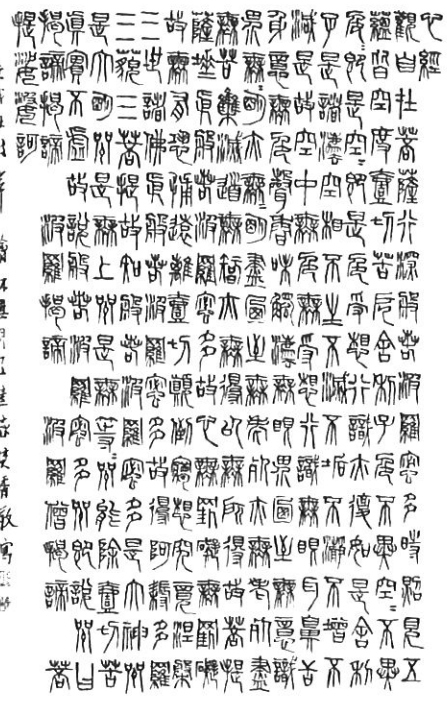 心經
觀自在菩薩行深般若波羅蜜多時照見五
蘊皆空度壹切苦厄舍利子色不異空=不異
色即是空=即是色受想行識亦復如是舍利
子是諸灋空相不生不滅不垢不淨不增不
減是故空中無色無受想行識無眼耳鼻舌
身意無色聲香味觸灋無眼界乃至無意識
界無=明亦無=明盡乃至無老死亦無老死盡
無苦集滅道無智亦無得以無所得故菩提
薩埵依般若波羅蜜多故心無罣礙無罣礙
故無有恐怖遠離壹切顛倒夢想究竟涅槃
三世諸佛依般若波羅蜜多故得阿耨多羅
三藐三菩提故知般若波羅蜜多是大神咒
是大明咒是無上咒是無等=咒能除壹切苦
真實不虛故說般若波羅蜜多咒即說咒曰
揭諦揭諦 波羅揭諦 波羅僧揭諦 菩
提薩婆訶